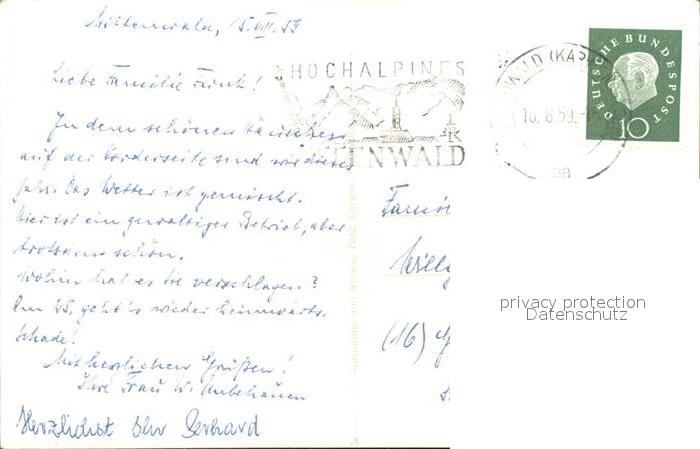 Mittenwald, 15. VIII. 59
Liebe Familie Funk!
In dem schönen Häuschen
auf der Vorderseite sind wir dieses
Jahr. Das Wetter ist gemischt.
Hier ist ein gewaltiger Betrieb, aber
trotzdem schön.
Wohin hat es Sie verschlagen?
Am 25. geht's wieder heimwärts.
Schade!
Mit herzlichen Grüßen!
Ihre Frau W. Unbehauen
Herzlichst Ihr Gerhard
HOCHALPINES
TENWALD
WALD (KAR
16.8.59.
DEUTSCHE BUNDESPOST
10
Famil
Willy
(16) G
privacy protection
Datenschutz